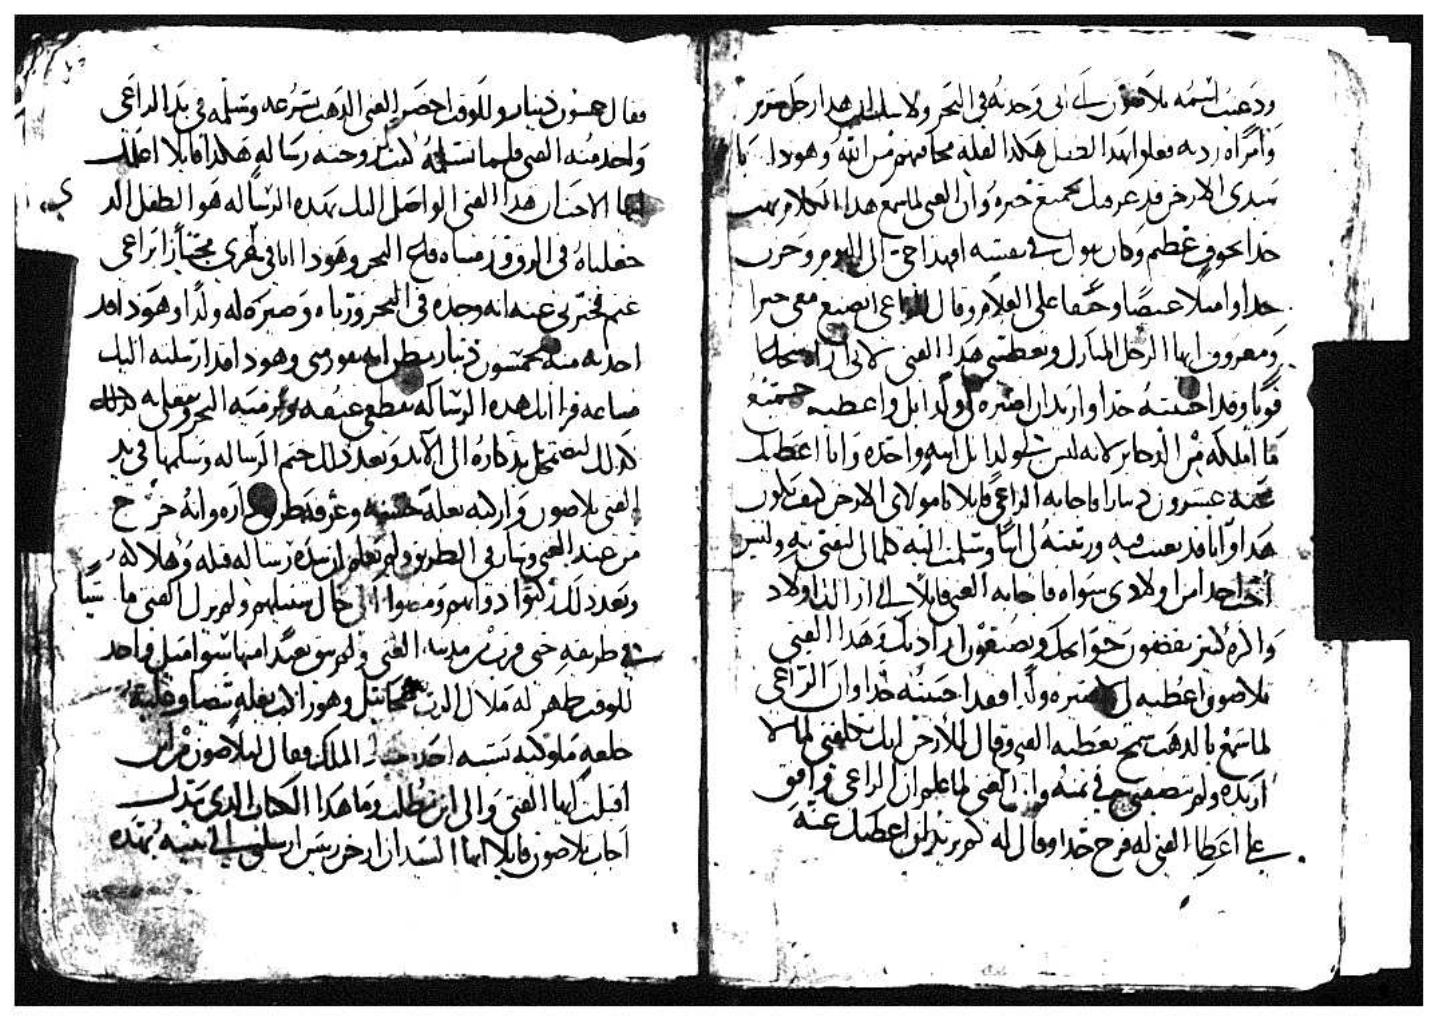 ودعيت اسمه تلاصون لاني وجدته في البحر ولا شك ان هذا رجل شرير
وامراه رديه فعلوا بهذا الطفل هكذا لقلة مخافتهم من الله وهوذا يا
سيدي الارخن قد عرفتك بجميع خبره وان الغني لما سمع هذا الكلام بهت
جدا بخوف عظيم وكان يقول في نفسه افهذا حي الى اليوم وحزن
جدا وامتلا غيضا وحمقا على الغلام وقال للراعي اتصنع معي خيرا
ومعروف ايها الرجل المبارك وتعطيني هذا الفتى لاني اراه
قويا وقد احببته جدا واريد ان اصيره لي ولدا بل واعطيه جميع
ما املكه من الدخاير لانه ليس لي ولدا بل ابنه واحده وانا اعطيك
ثمنه عشرون دينارا فاجابه الراعي قايلا يا مولاي الارخن كيف يكون
هذا وانا قد تعبت فيه وربيته لي ابنا وسلمت اليه كلما لي لثقتي به وليس
احب احدا من اولادي سواه فاجابه الغني قايلا لي ان لك اولاد
واخره كثير يقضون حوايجك ويصنعون ارادتك وهذا الفتى
تلاصون اعطيه لي لاصيره ولدا فقد احببته جدا وان الراعي
لما سمع بالذهب سمح يعطيه الفتى وقال للارخن انك تكلفني لما لا
اريده ولم تنصفني في ثمنه وان الغني لما علم ان الراعي قد وافق
على اعطا الفتى له فرح جدا وقال له كم تريد ان اعطيك عنه
فقال خمسون دينار وللوقت احضر الغني الذهب بسرعه وسلمه في يد الراعي
واخد منه الفتى فلما تسلمه كتب لزوجته رساله هكذا قايلا اعلمك
ايها الاخت ان هذا الفتى الواصل اليك بهذه الرساله هو الطفل الدي
جعلناه في الزق ورميناه في البحر وهوذا انا في طريقي مجتازا براعي
غنم فخبرني عنه انه وجده في البحر ورباه وصيره له ولدا وهوذا قد
اخدته منه بخمسون دينار وهوذا قد ارسلته اليك
فساعة قراتك هذه الرساله تقطعي عنقه وترميه البحر
كذلك ليضمحل تذكاره الى الابد وبعد ذلك ختم الرساله وسلمها في يد
الفتى تلاصون واركبه بغله حسنه وعرفه طريق داره وانه خرج
من عند الغني وسار في الطريق ولم يعلم ان بيده رساله قتله وهلاكه
وبعد ذلك ركبوا دوابهم ومضوا الى حال سبيلهم ولم يزل الفتى ماشيا
في طريقه حتى قرب من مدينة الغني ولم يبق بعيد منها سوا ميل واحد
للوقت ظهر له ملاك الرب ميخاييل وهو راكب بغله بيضا وعليه
خلعه ملوكيه يشبه احد الملك وقال لتلاصون من اين
اقبلت ايها الفتى والى اين تطلب وما هذا الكتاب الدي بيدك
اجاب تلاصون قايلا ايها السيد ان ارخن ريس ارسلني الى بيته بهذه